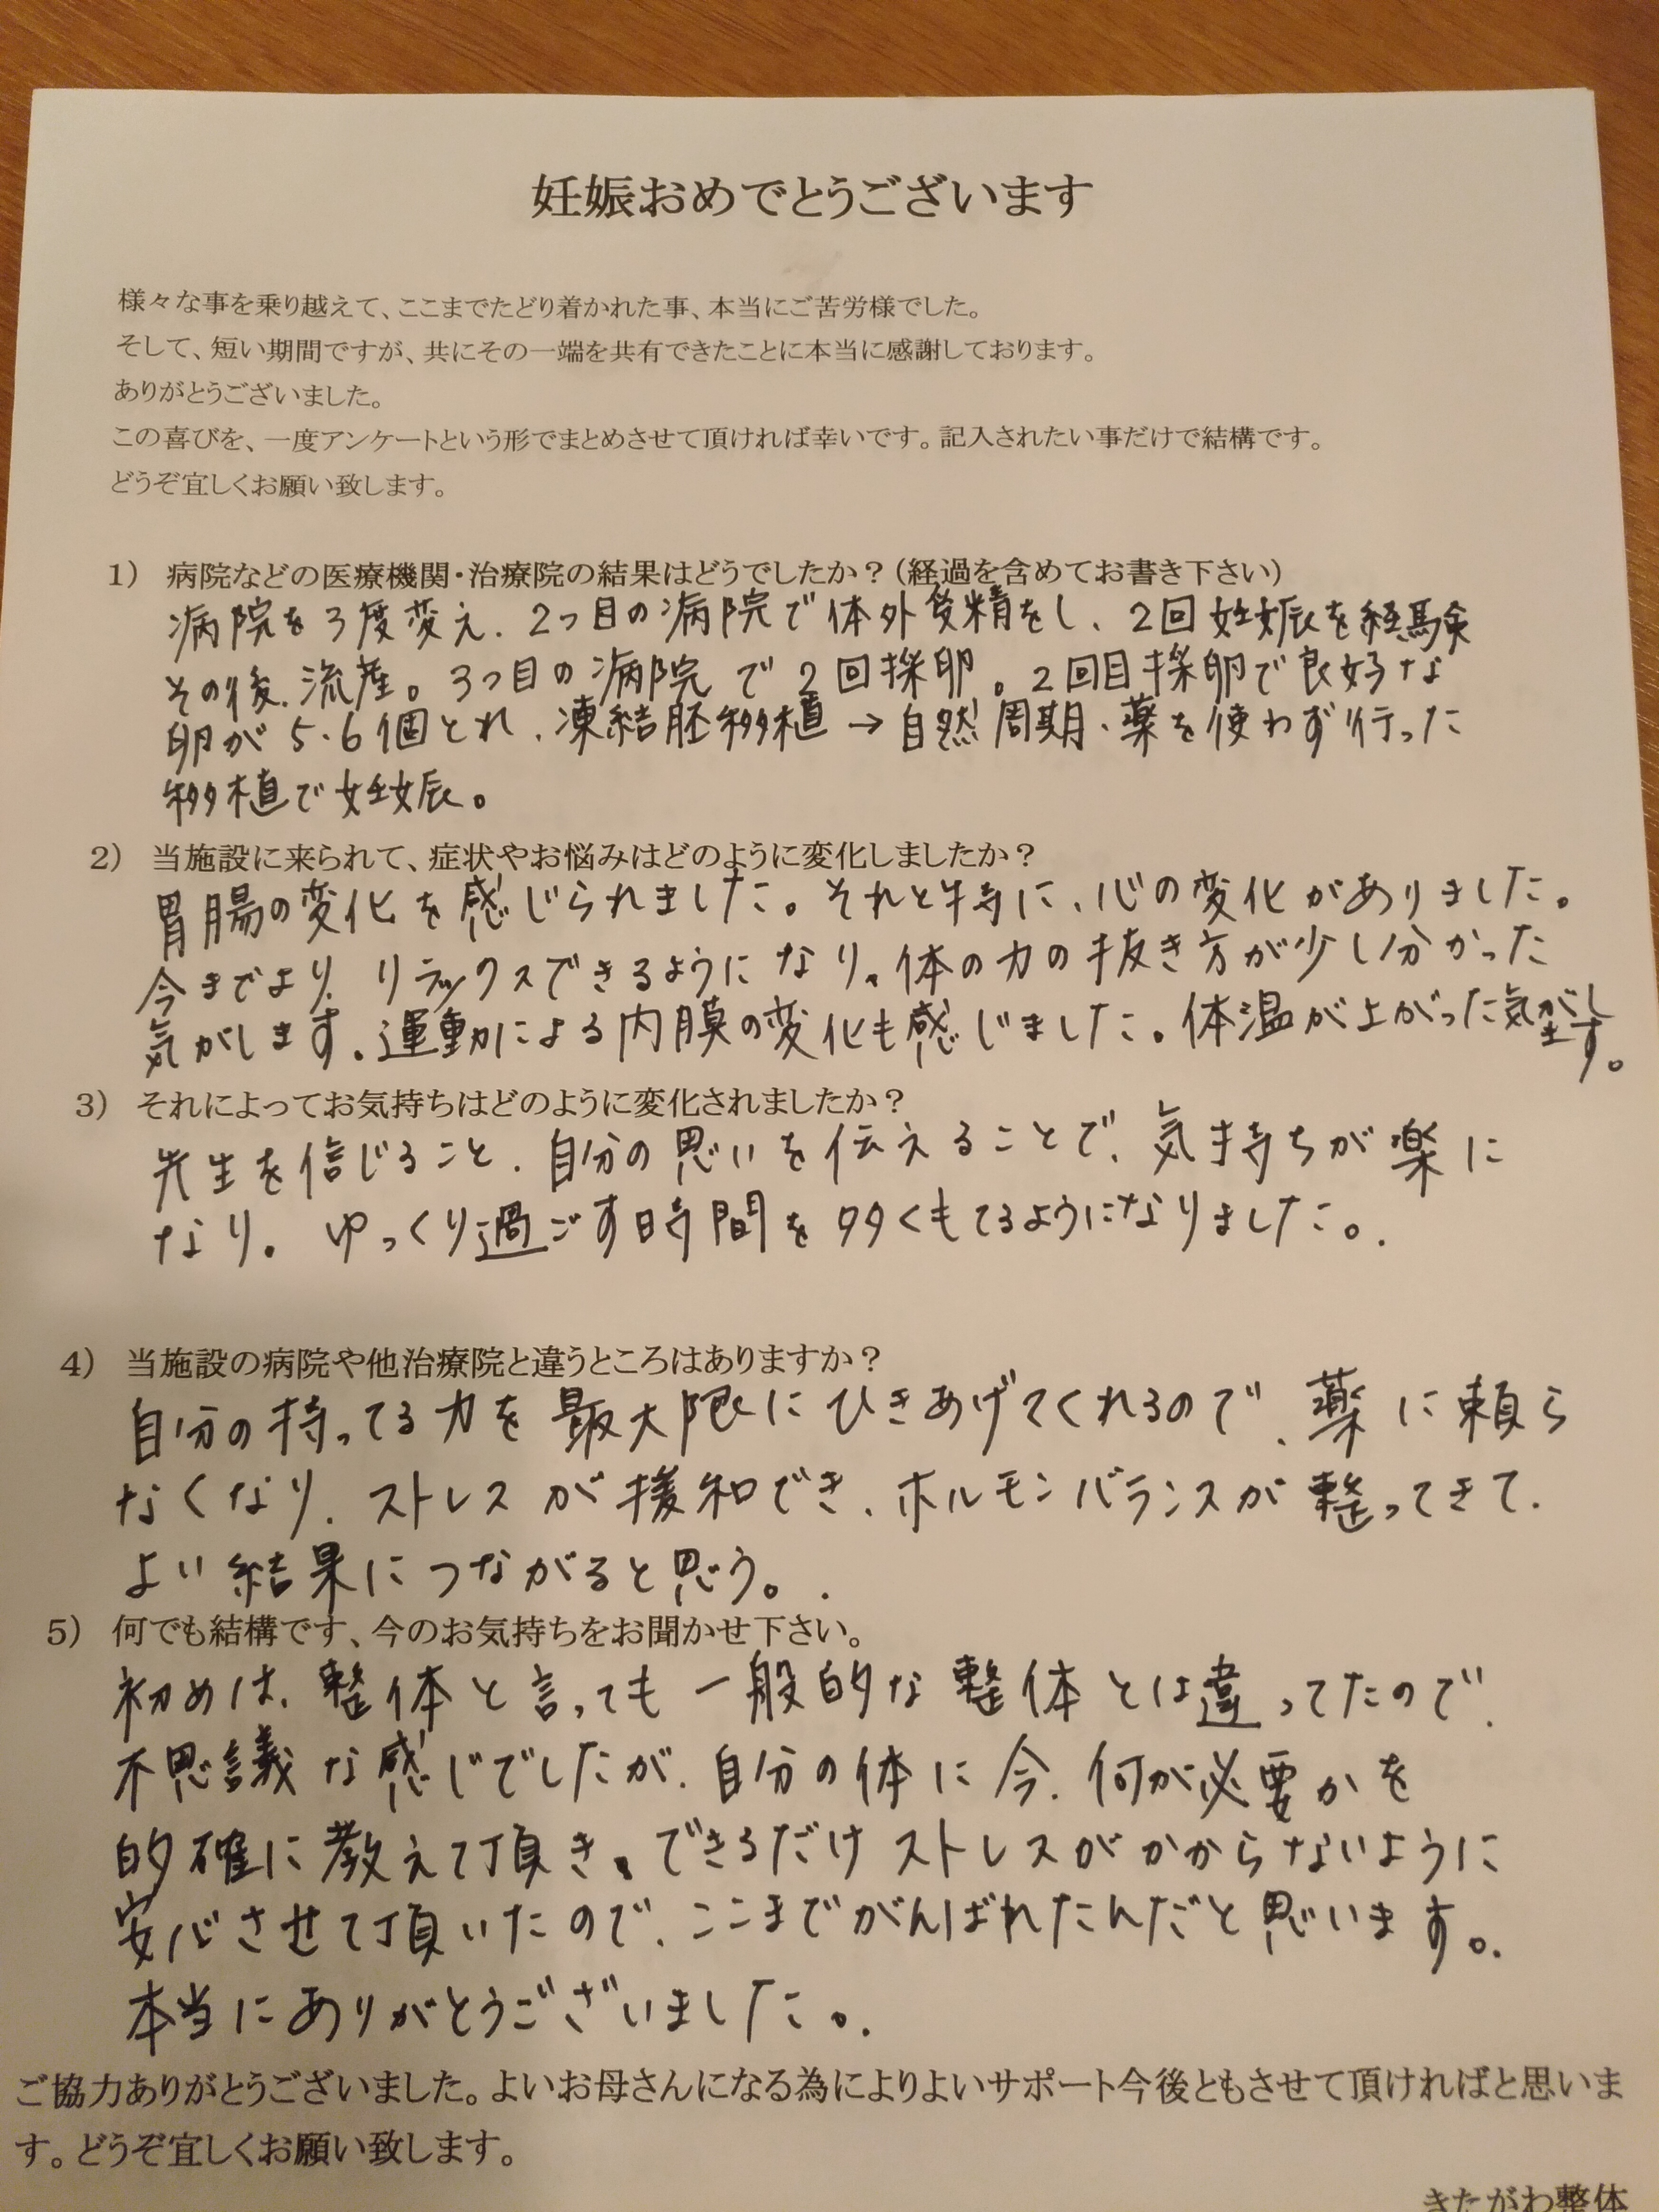 妊娠おめでとうございます
様々な事を乗り越えて、ここまでたどり着かれた事、本当にご苦労様でした。
そして、短い期間ですが、共にその一端を共有できたことに本当に感謝しております。
ありがとうございました。
この喜びを、一度アンケートという形でまとめさせて頂ければ幸いです。記入されたい事だけで結構です。
どうぞ宜しくお願い致します。
1） 病院などの医療機関・治療院の結果はどうでしたか？（経過を含めてお書き下さい）
病院を3度変え、2つ目の病院で体外受精をし、2回妊娠を経験
その後、流産。3つ目の病院で2回採卵。2回目採卵で良好な
卵が5・6個とれ、凍結胚移植→自然周期、薬を使わず行った
移植で妊娠。
2） 当施設に来られて、症状やお悩みはどのように変化しましたか？
胃腸の変化を感じられました。それと特に、心の変化がありました。
今までより、リラックスできるようになり、体の力の抜き方が少し分かった
気がします。運動による内膜の変化も感じました。体温が上がった気がします。
3） それによってお気持ちはどのように変化されましたか？
先生を信じること、自分の思いを伝えることで、気持ちが楽に
なり。ゆっくり過ごす時間を多くもてるようになりました。
4） 当施設の病院や他治療院と違うところはありますか？
自分の持ってる力を最大限にひきあげてくれるので、薬に頼ら
なくなり、ストレスが援和でき、ホルモンバランスが整ってきて、
よい結果につながると思う。
5） 何でも結構です、今のお気持ちをお聞かせ下さい。
初めは、整体と言っても一般的な整体とは違ってたので、
不思議な感じでしたが、自分の体に今、何が必要かを
的確に教えて頂き、できるだけストレスがかからないように
安心させて頂いたので、ここまでがんばれたんだと思います。
本当にありがとうございました。
ご協力ありがとうございました。よいお母さんになる為によりよいサポート今後ともさせて頂ければと思いま
す。どうぞ宜しくお願い致します。
きたがわ整体